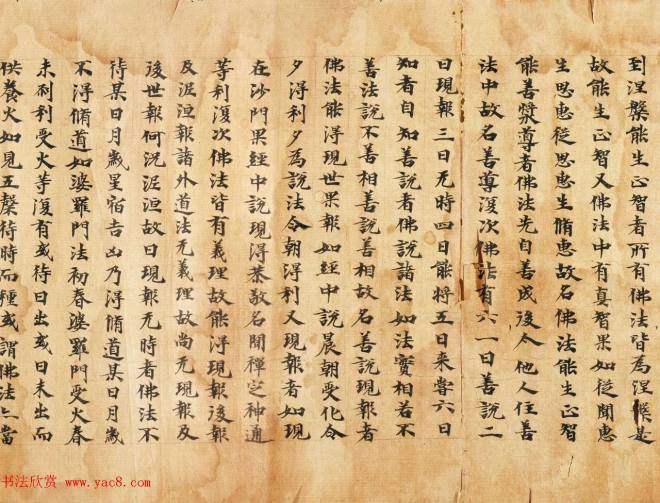 到涅槃能生正智者所有佛法皆為涅槃是
故能生正智又佛法中有真智果如從聞惠
生思惠從思惠生脩惠故名佛法能生正智
能善將導者佛法先自善成後令他人住善
法中故名善導復次佛法有六一曰善說二
曰現報三曰无時四曰能將五曰来嘗六曰
知者自知善說者佛說諸法如法實相若不
善法說不善相善說善相故名善說現報者
佛法能淂現世果報如經中說晨朝受化令
夕淂利夕為說法令朝淂利又現報者如現
在沙門果經中說現淂恭敬名聞禪定神通
等利復次佛法皆有義理故能淂現報後報
及泥洹報諸外道法无義理故尚无現報及
後世報何況泥洹故曰現報无時者佛法不
待某日月歲星宿吉凶乃淂脩道某日月歲
不淂脩道如婆羅門法初春婆羅門受火春
末刹利受火等復有或待日出或日未出而
供養火如見五槃待時而種或謂佛法亦當
书法欣赏 www.yac8.com